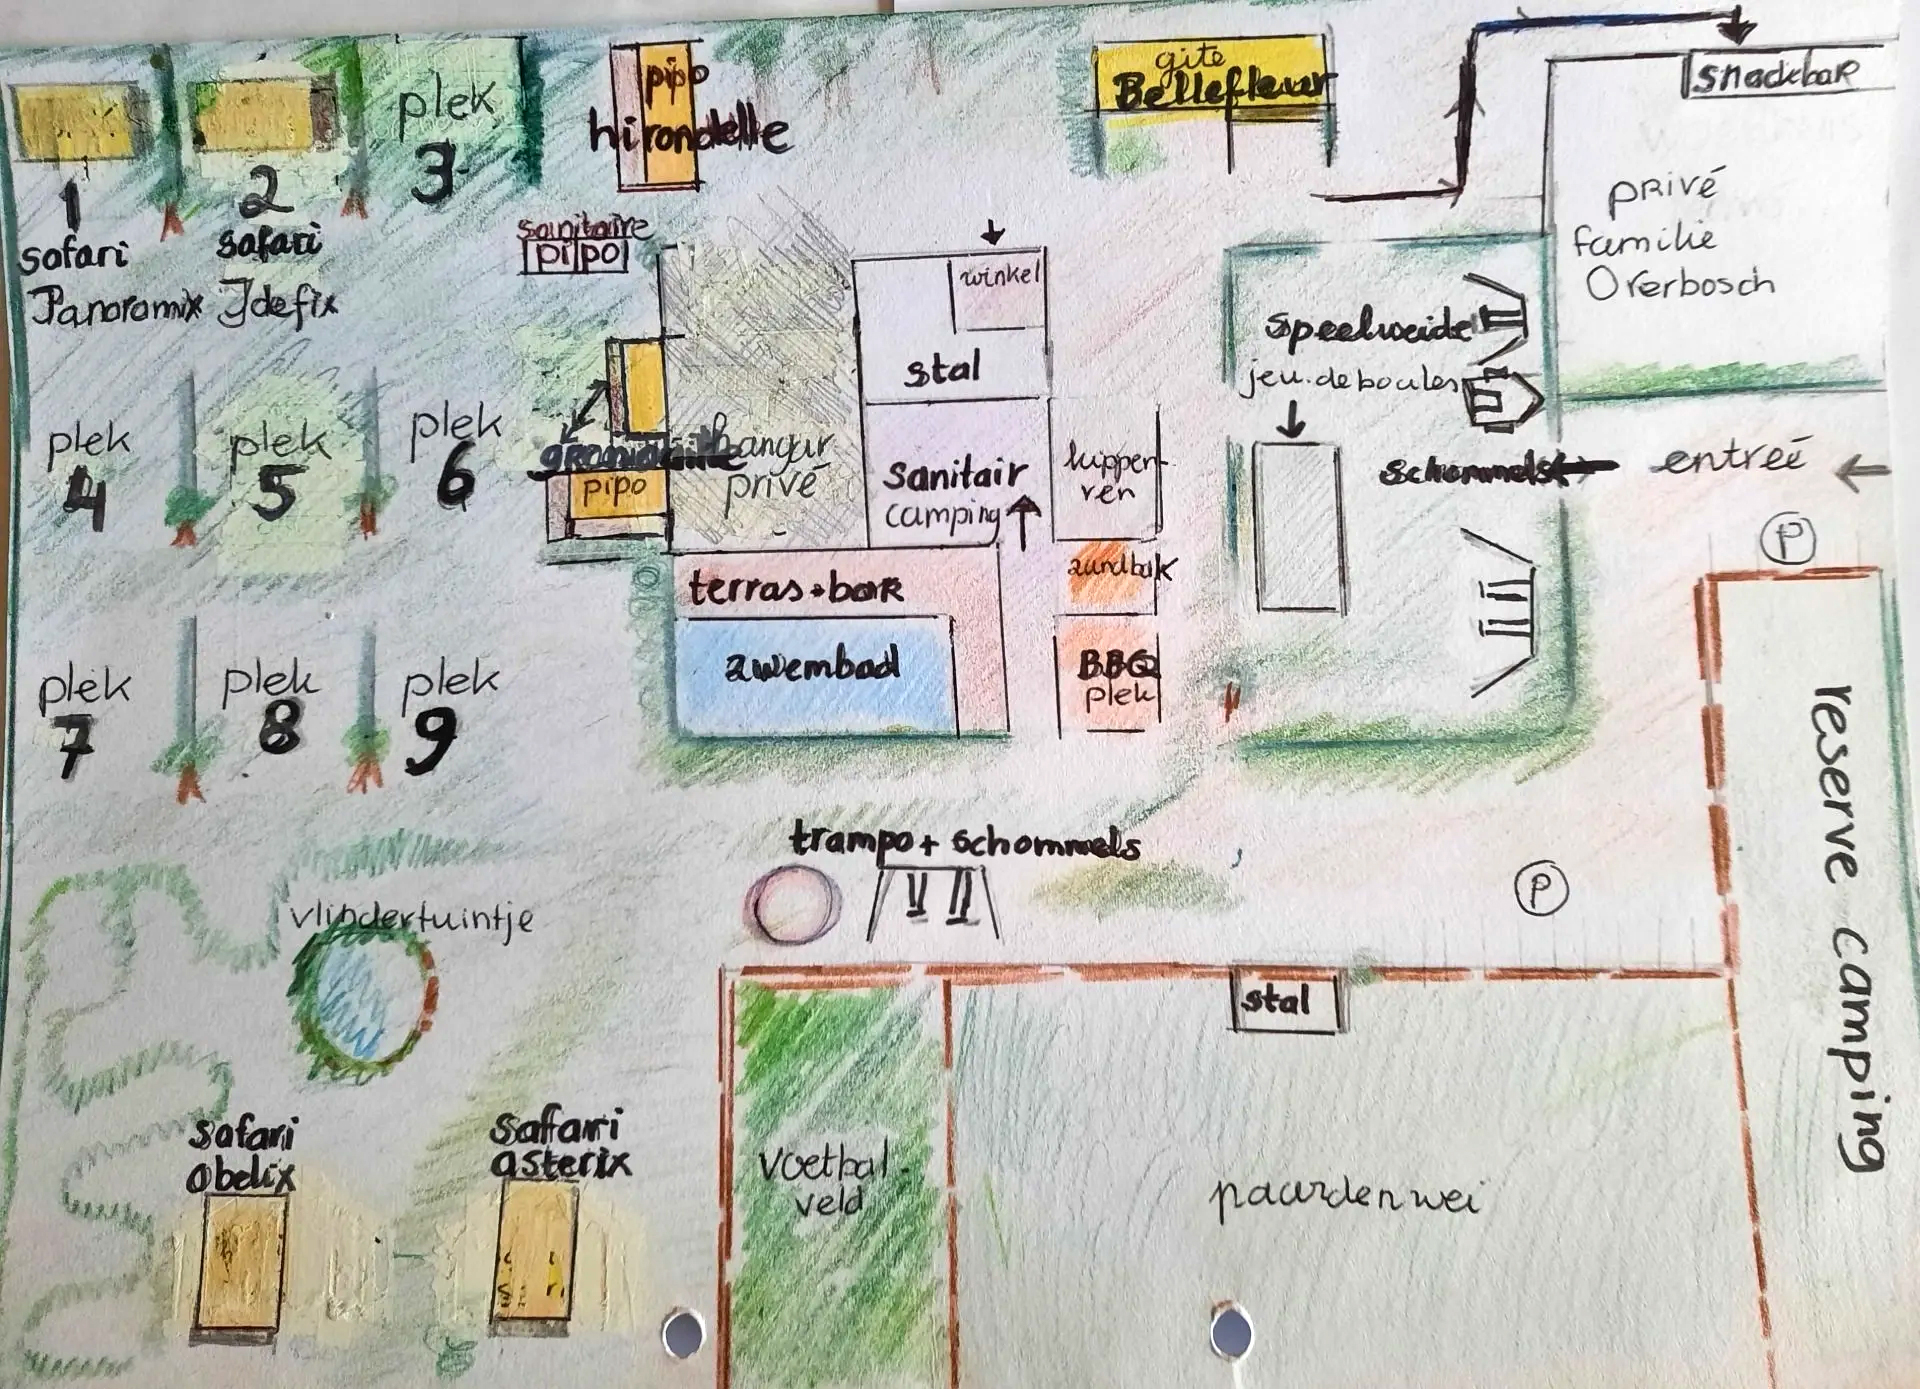 gite
Bellefleur
snackbar
plek
3
pipo
hirondelle
1
safari
Panoramix
2
safari
Idefix
privé
familie
Overbosch
sanitaire
pipo
winkel
stal
speelweide
jeu.de boules
plek
4
plek
5
plek
6
hangar
privé
pipo
sanitair
camping
kippen
ren
schommels
entreé
P
terras + bar
zandbak
zwembad
BBQ
plek
plek
7
plek
8
plek
9
reserve camping
trampo + schommels
P
vlindertuintje
stal
safari
obelix
saffari
asterix
voetbal
veld
paardenwei